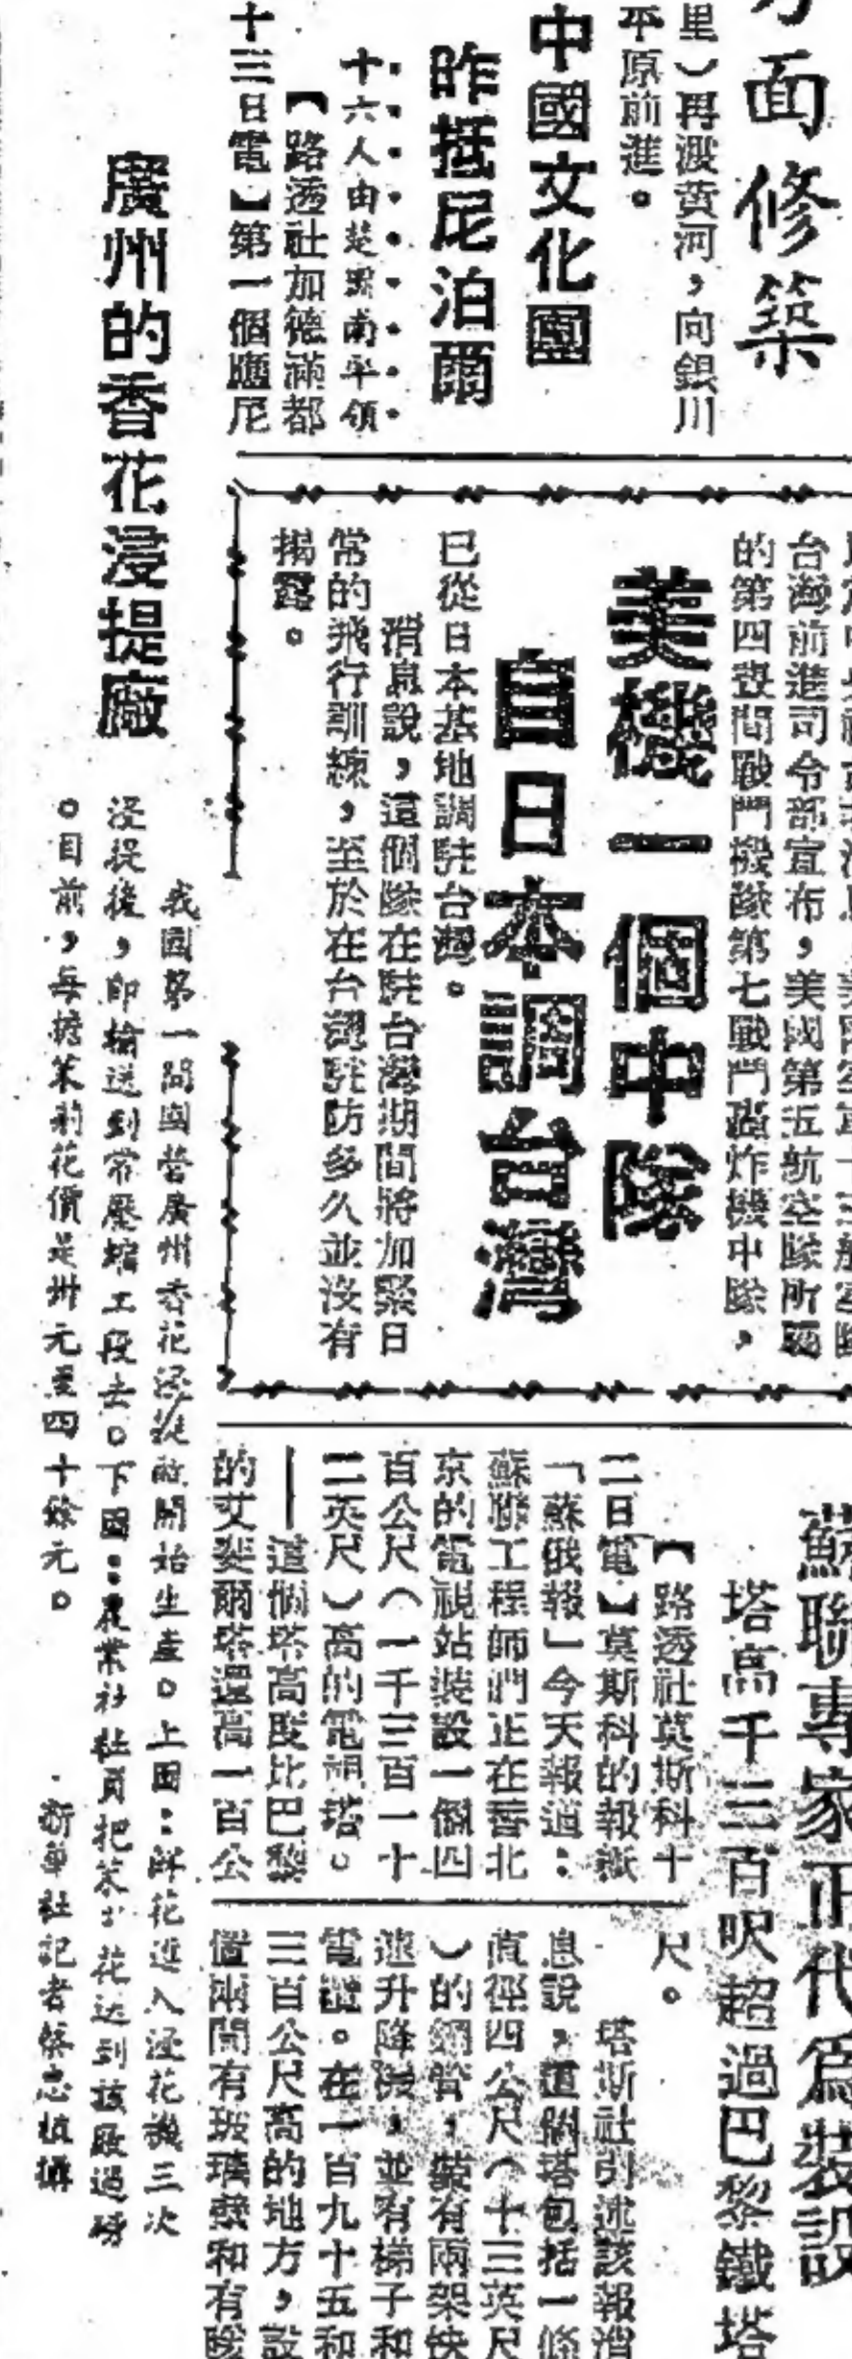 里）再渡黃河，向銀川
平原前進。
方面修築
中國文化團
昨抵尼泊爾
十六人由楚圖南率領
【路透社加德滿都
十三日電】第一個應尼
台灣前進司令部宣布，美國第五航空隊所屬
中隊，
美機一個中隊
自日本調台灣
已從日本基地調駐台灣。
消息說，這個隊在駐台灣期間將加緊日
常的飛行訓練，至於在台灣駐防多久並沒有
揭露。
蘇聯專家正代為裝設
塔高千三百呎超過巴黎鐵塔
【路透社莫斯科十
二日電】莫斯科的報紙
「蘇俄報」今天報道：
蘇聯工程師們正在替北
京的電視站裝設一個四
百公尺（一千三百一十
二英尺）高的電視塔。
——這個塔高度比巴黎
的艾斐爾塔還高一百公
尺。
塔斯社引述該報消
息說，這個塔包括一條
直徑四公尺（十三英尺
）的鋼管，裝有兩架快
速升降機，並有梯子和
電纜。在一百九十五和
三百公尺高的地方，設
置兩間有玻璃窗和有
廣州的香花浸提廠
我國第一間國營廣州香花浸提廠開始生產。上圖：鮮花進入浸花機三次
浸提後，即輸送到常壓縮工段去。下圖：農業社社員把茉莉花送到該廠過磅
。目前，每擔茉莉花價是卅元至四十餘元。
新華社記者蔡忠植攝